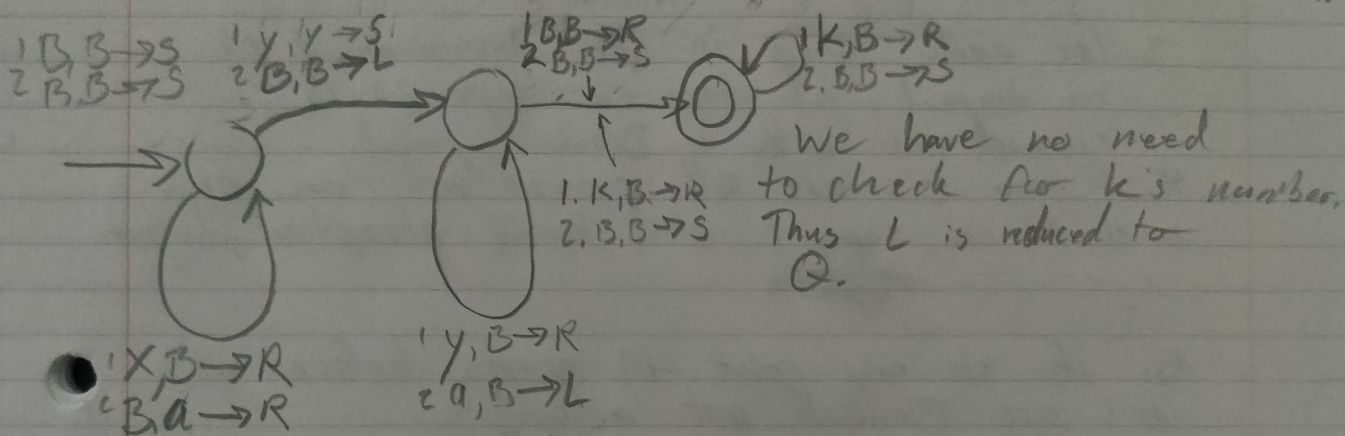 1 B,B→S
2 B,B→S
1 y,y→S
2 B,B→L
1 B,B→R
2 B,B→S
1 K,B→R
2. B,B→S
1. K,B→R
2. B,B→S
We have no need
to check for k's number.
Thus L is reduced to
Q.
1 X,B→R
2 B,a→R
1 y,B→R
2 a,B→L